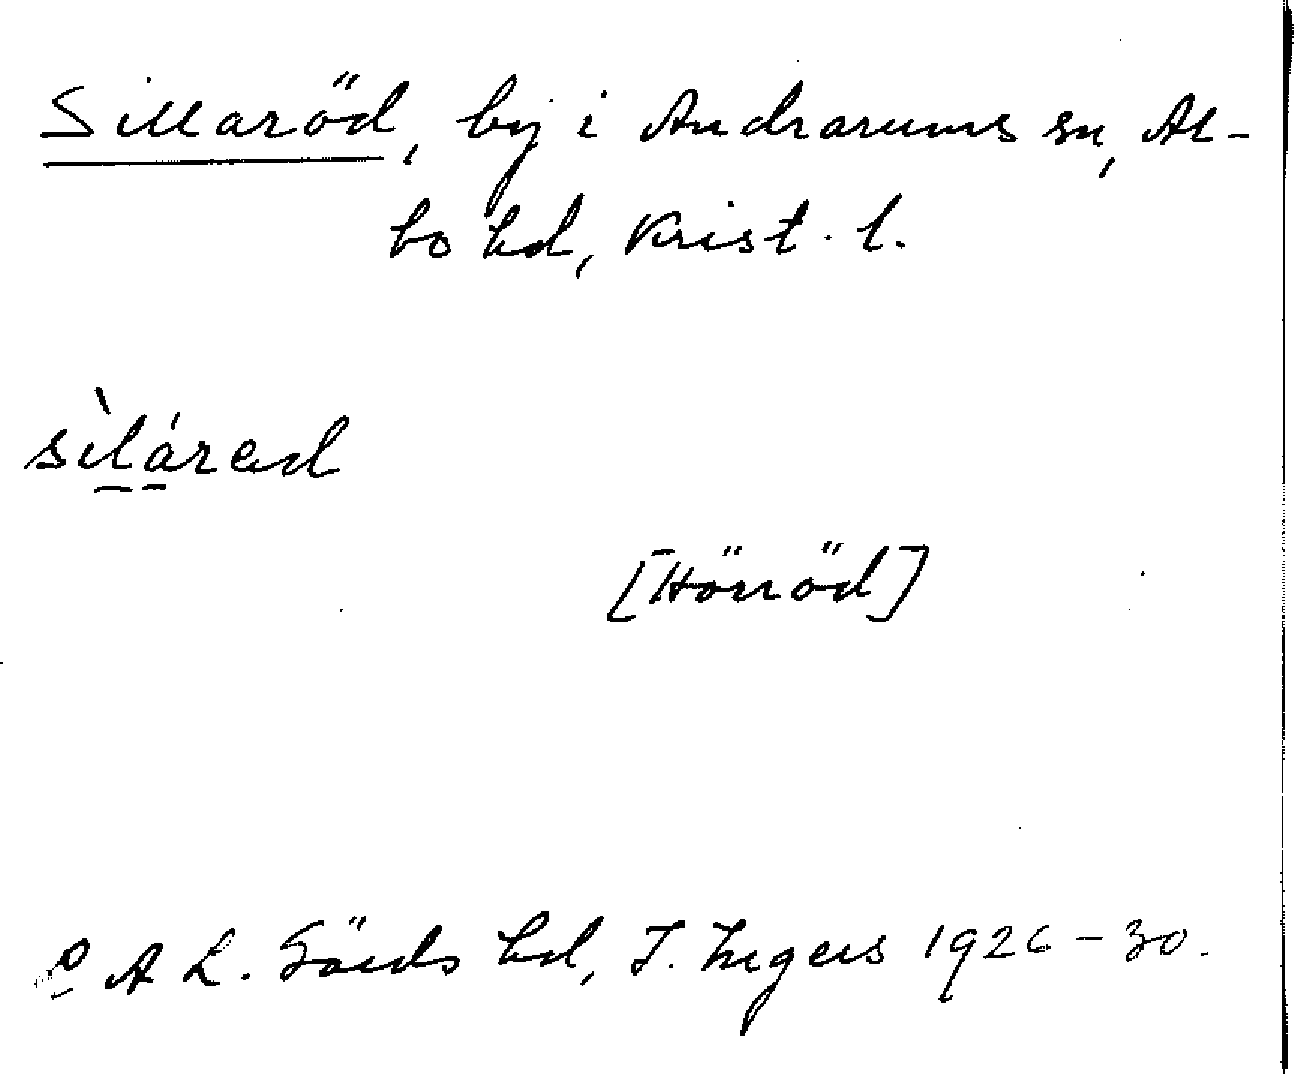 Sillaröd, by i Andrarums sn, Al-
bo hd, Krist. l.
sìl̲á̲rɵd
[Hörröd]
A L. Gärds hd, I. Ingers 1926-30.